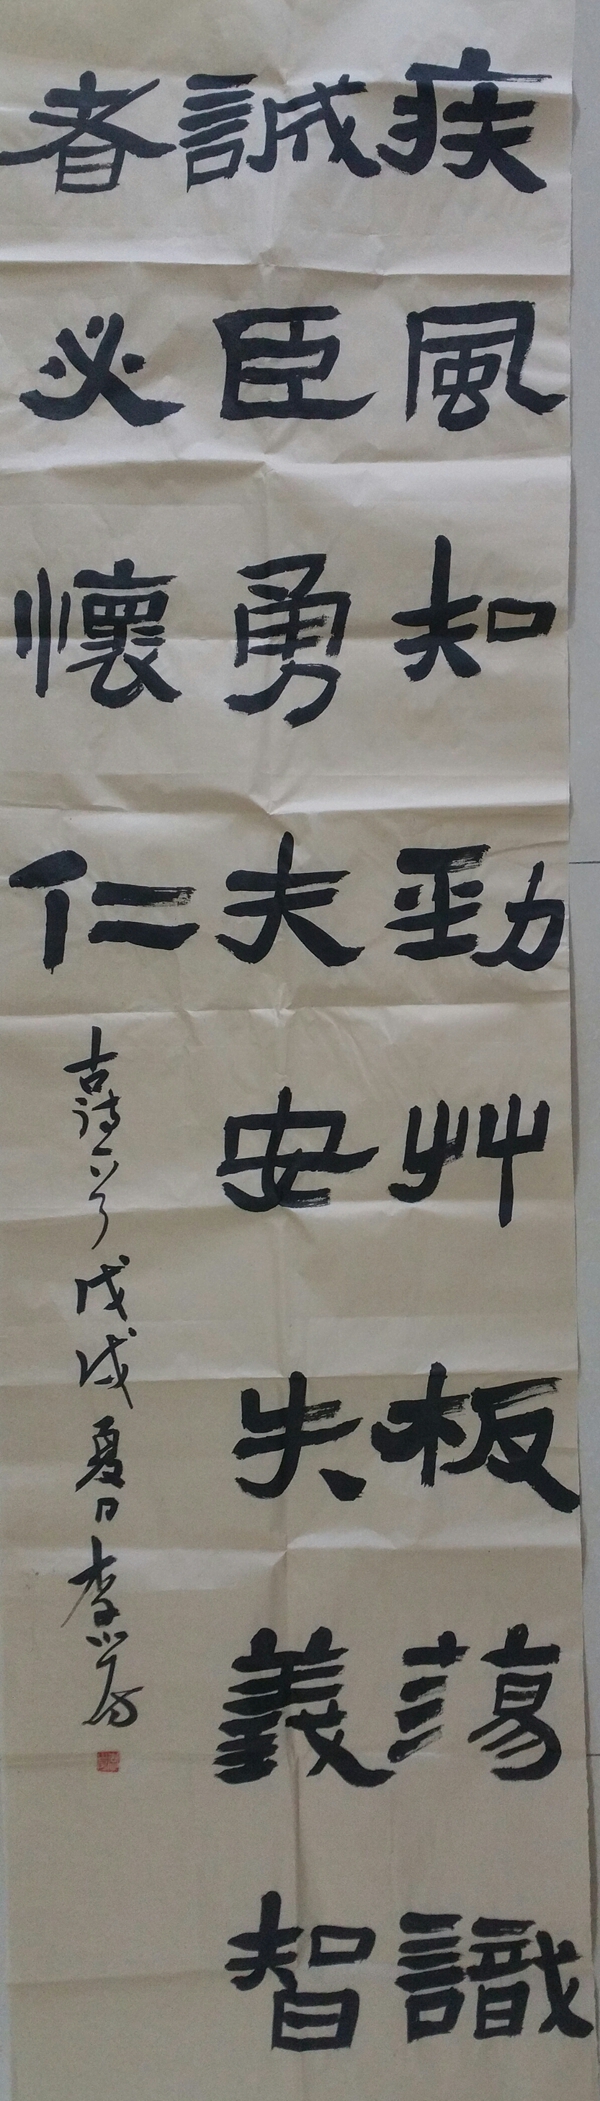 疾風知勁艸板蕩識
誠臣勇夫安失義智
者必懷仁
古詩一首戊戌夏日李